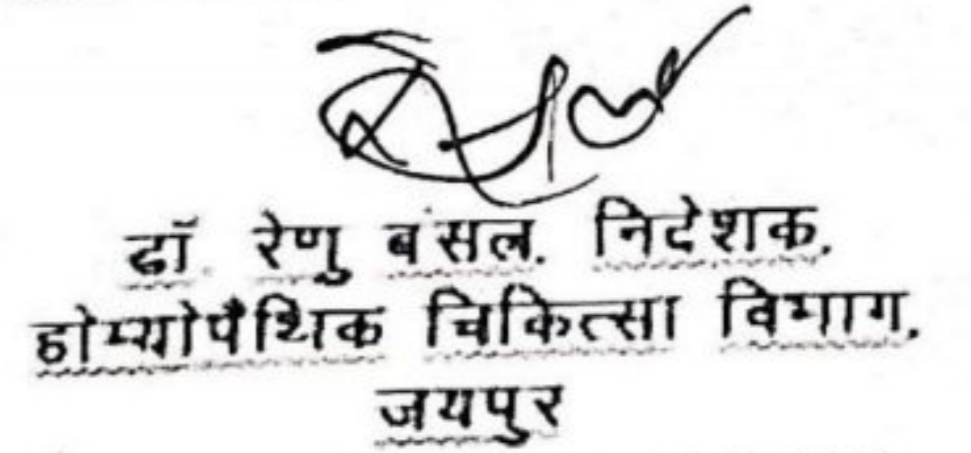 डॉ. रेणु बंसल. निदेशक.
होम्योपैथिक चिकित्सा विभाग.
जयपुर